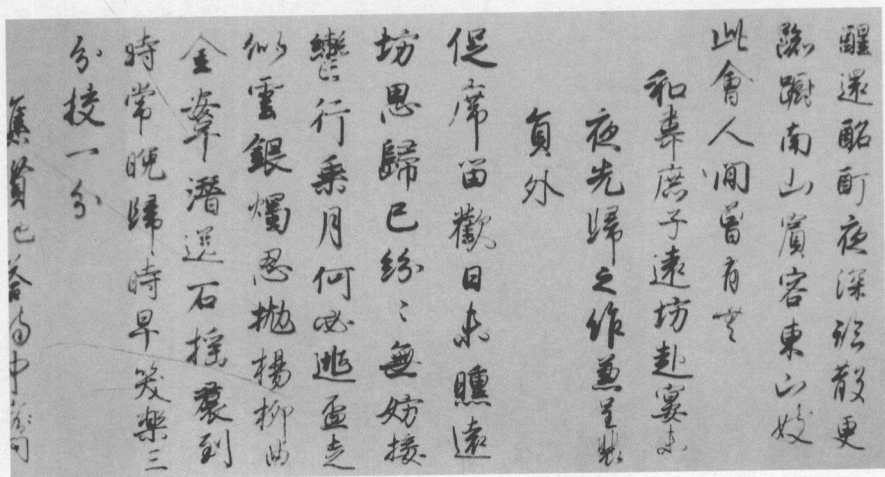 醒還酩酊夜深初散更
踟躕南山賓客東山妓
此會人間曾有無
和韋庶子遠坊赴宴未
夜先歸之作兼呈裴
員外
促席留歡日未曛遠
坊思歸已紛〻無妨按
轡行乘月何必逃盃走
似雲銀燭忍拋楊柳曲
金鞍潛送石榴裙到
時常晚歸時早笑樂三
分校一分
集賢池答侍中問